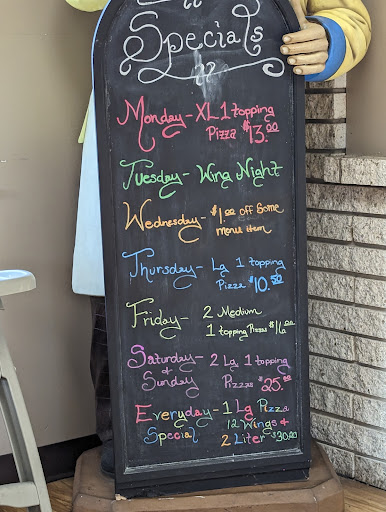 Specials
Monday - XL 1 topping
Pizza $13.00
Tuesday - Wing Night
Wednesday - $1.00 off Some
menu item
Thursday - La 1 topping
Pizza $10.50
Friday - 2 Medium
1 topping Pizzas $16.00
Saturday - 2 La 1 topping
& Sunday Pizzas $25.00
Everyday - 1 La Pizza
Special 12 Wings &
2 Liter $30.00